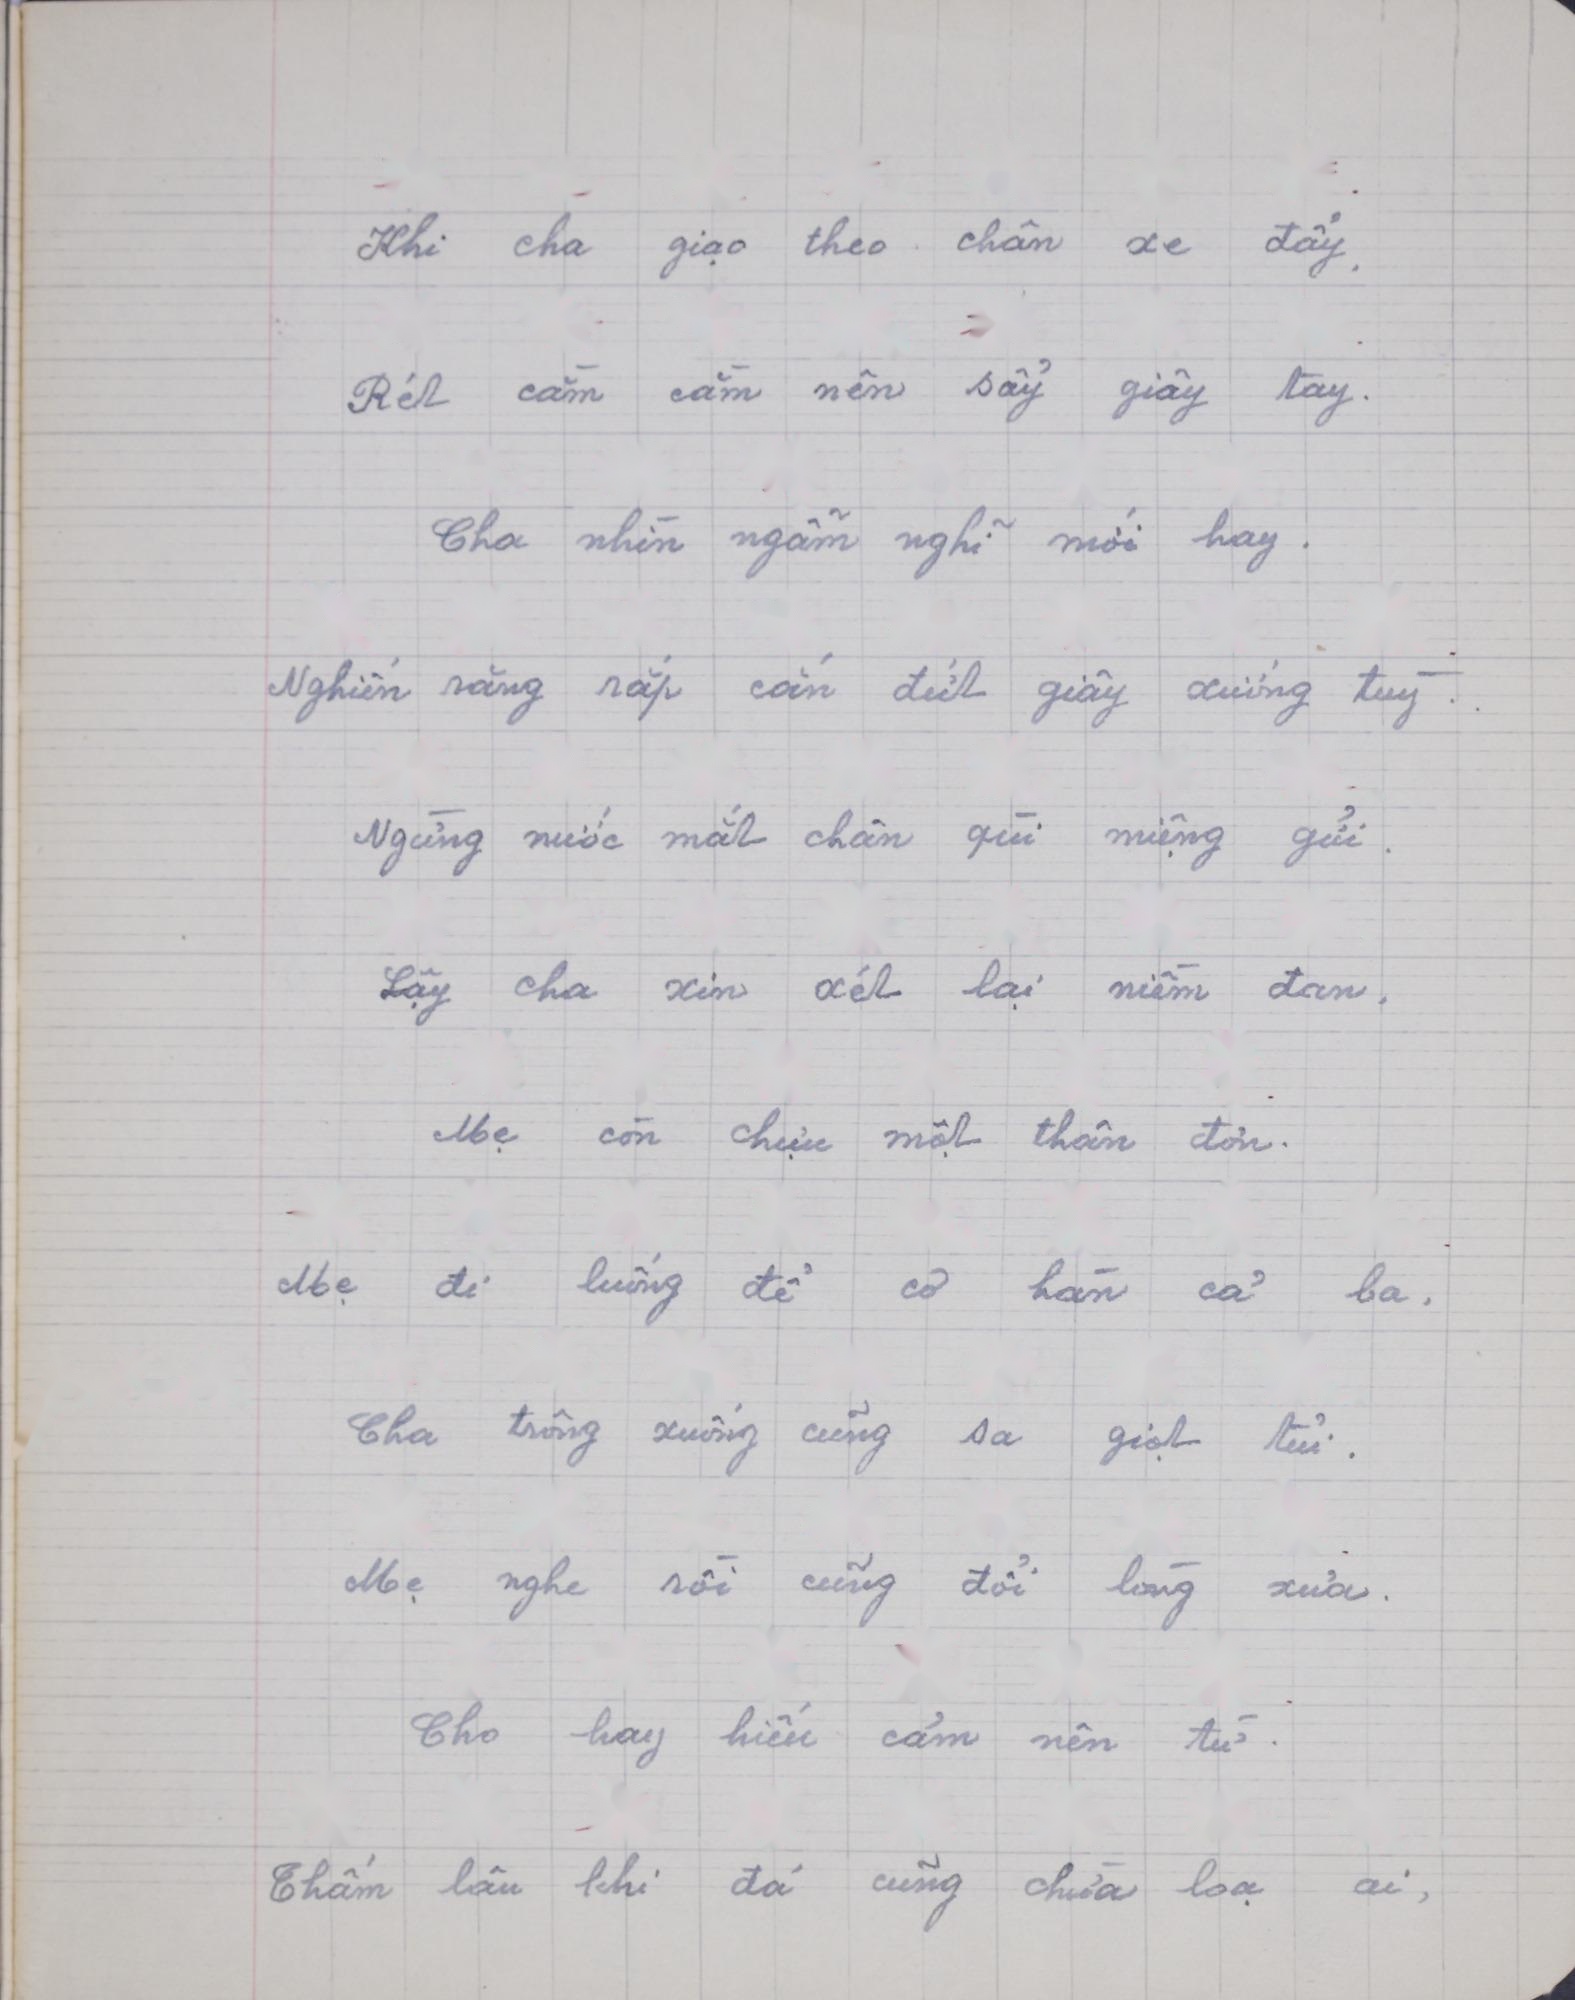 Khi cha giạo theo chân xe đẩy,
Rét cằm cằm nên sẩy giây tay.
Cha nhìn ngẫm nghĩ mới hay.
Nghiến răng rắp cắn đứt giây xương tuỳ.
Ngừng nước mắt chân qùi miệng gửi.
Lậy cha xin xét lại niềm đan.
Mẹ còn chựu một thân đơn.
Mẹ đi luống để cơ hàn cả ba.
Cha trông xuống cũng sa giọt tủi.
Mẹ nghe rồi cũng đổi lòng xưa.
Cho hay hiếu cảm nên từ.
Thấm lâu khi đá cũng chừa loạ ai,